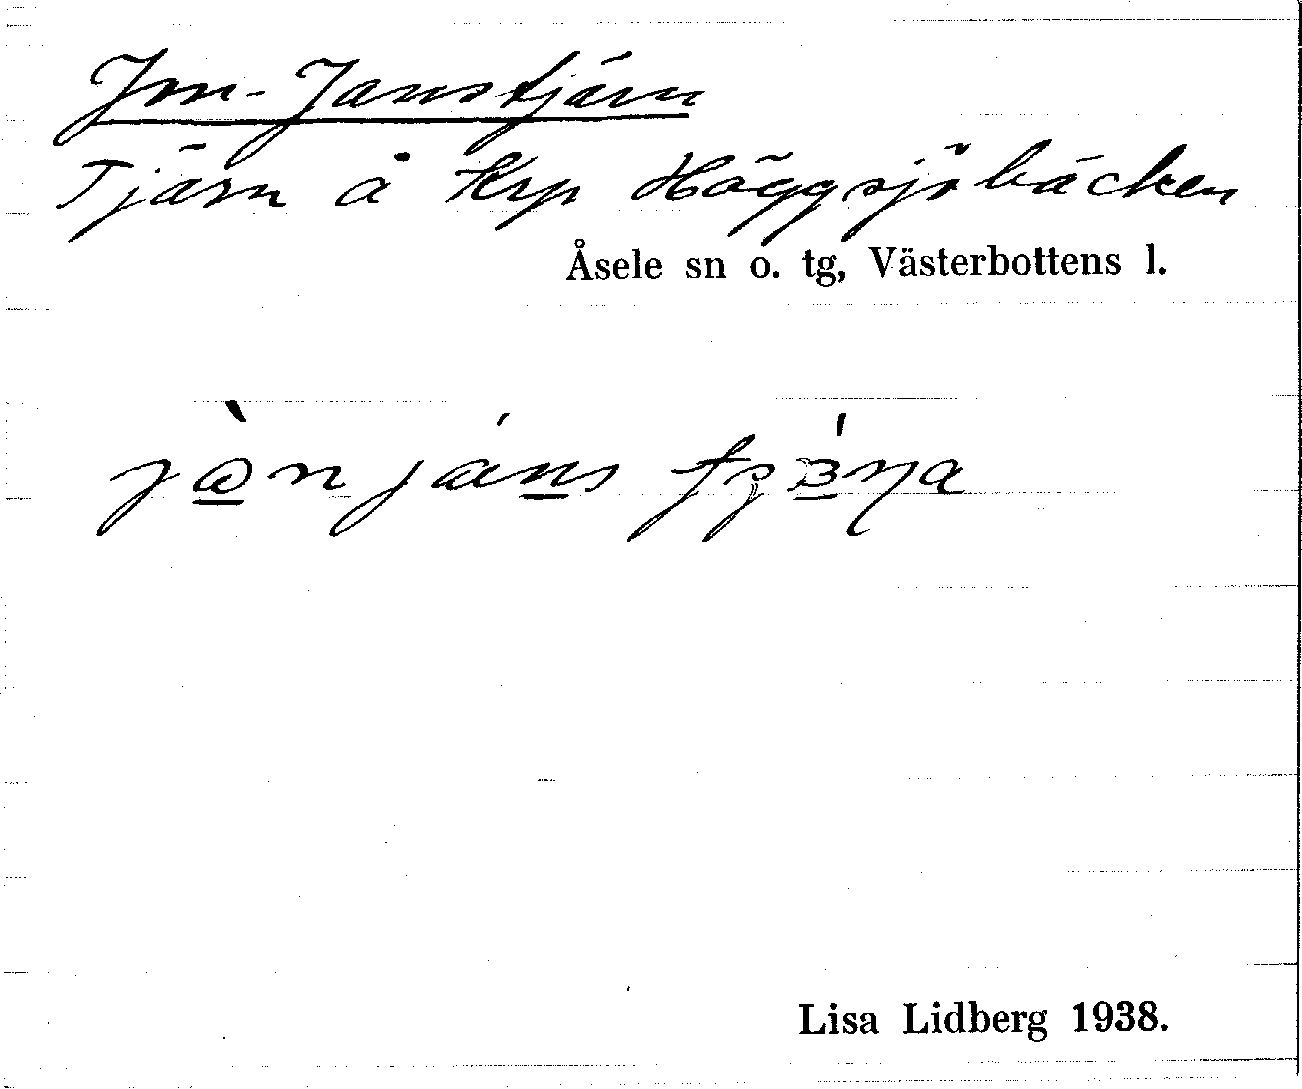 Jon-Janstjärn
Tjärn å Krp Häggsjöbäcken
Åsele sn o. tg, Västerbottens l.
Lisa Lidberg 1938.